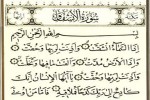 سورة الانشقاق
بسم الله الرحمن الرحيم
إذا السماء انشقت وأذنت لربها وحقت
وإذا الأرض مدت وألقت ما فيها وتخلت
وأذنت لربها وحقت يا أيها الإنسان إنك
كادح إلى ربك كدحا فملاقيه فأما من أوتي